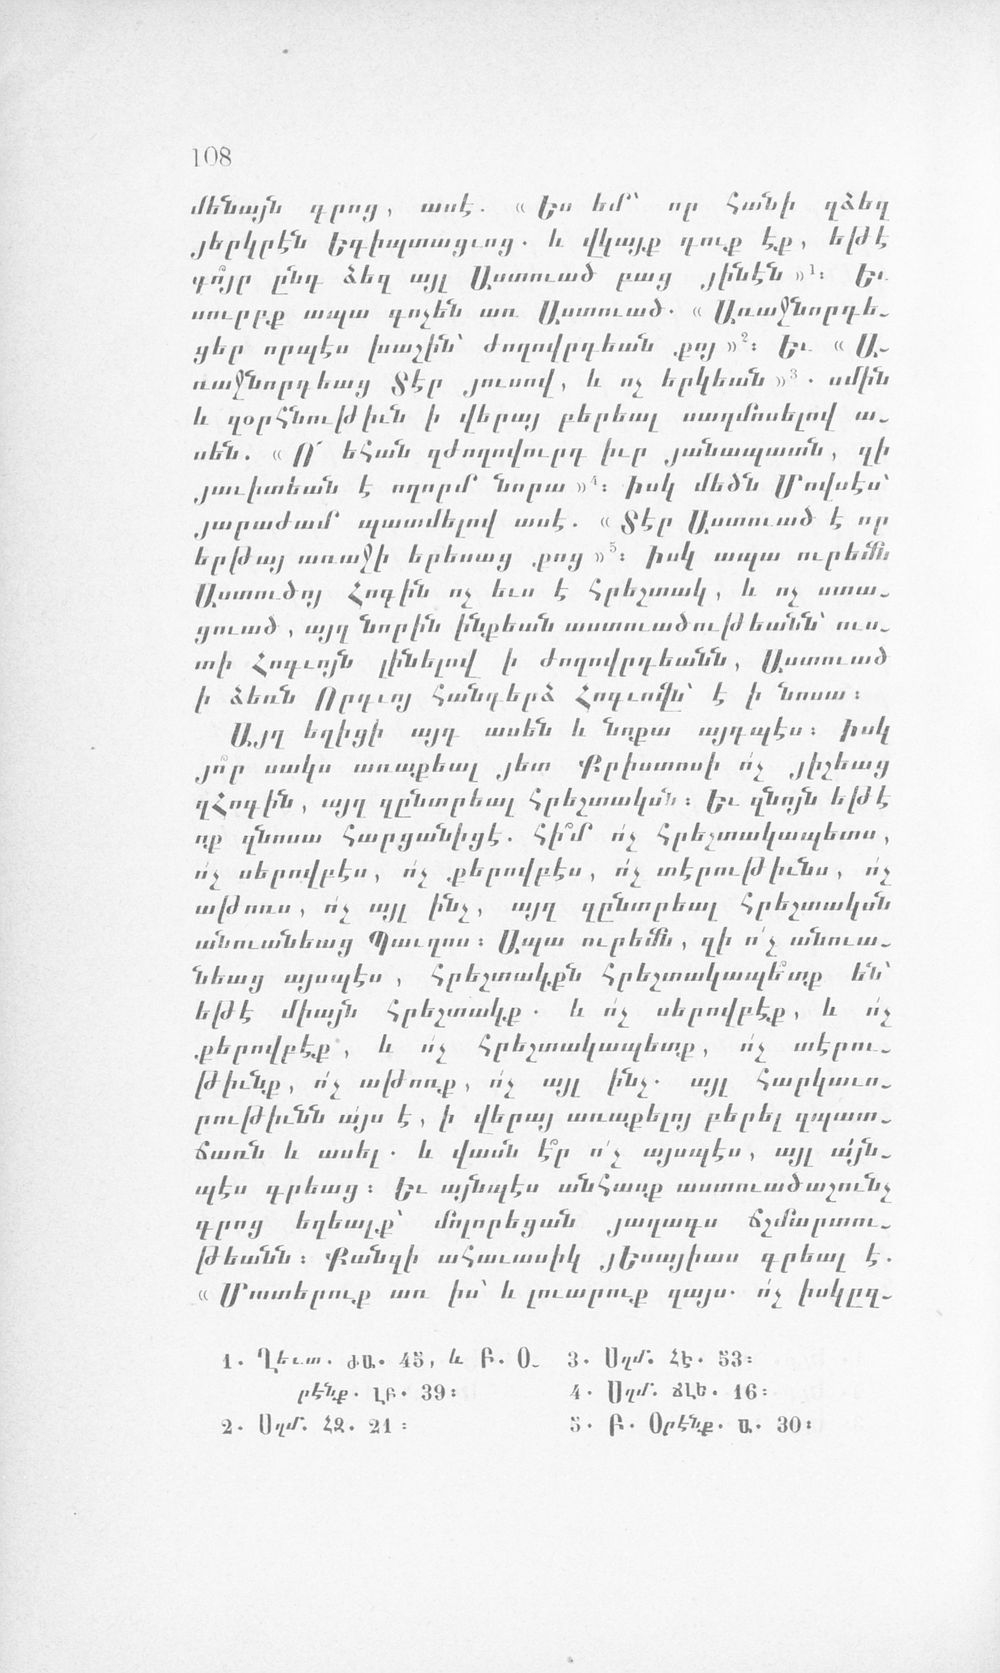 108
մենայն գրոց, ասէ. « Ես եմ՝ որ հանի զձեզ
յերկրէն Եգիպտացւոց. և վկայք դուք էք, եթէ
գո՞յր ընդ ձեզ այլ Աստուած բաց յինէն »¹։ Եւ
սուրբք ապա գոչեն առ Աստուած. « Առաջնորդե֊
ցեր որպէս խաշին՝ ժողովրդեան քոյ »²։ Եւ « Ա֊
ռաջնորդեաց Տէր յուսով, և ոչ երկեան »³. սմին
և զօրհնութիւն ի վերայ բերեալ սաղմոսելով ա֊
սեն. « Ո՛ եհան զժողովուրդ իւր յանապատն, զի
յաւիտեան է ողորմ նորա »⁴։ Իսկ մեծն Մովսէս՝
յարաժամ պատմելով ասէ. « Տէր Աստուած է որ
երթայ առաջի երեսաց քոց »⁵։ Իսկ ապա ուրեմն
Աստուծոյ Հոգին ոչ եւս է հրեշտակ, և ոչ ստա֊
ցուած, այղ նորին ինքեան աստուածութեանն՝ ուս֊
տի Հոգւոյն լինելով ի ժողովրդեանն, Աստուած
ի ձեռն Որդւոյ հանդերձ Հոգւովն՝ է ի նոսա։
Այղ եղիցի այդ ասեն և նոքա այդպէս։ Իսկ
յո՞ր սակս առաքեալ յետ Քրիստոսի ո՛չ յիշեաց
զՀոգին, այղ զընտրեալ հրեշտակսն։ Եւ զնոյն եթէ
ոք զնոսա հարցանիցէ. Հի՞մ ո՛չ հրեշտակապետս,
ո՛չ սերովբէս, ո՛չ քերովբէս, ո՛չ տէրութիւնս, ո՛չ
աթոռս, ո՛չ այլ ինչ, այղ զընտրեալ հրեշտակսն
անուանեաց Պաւղոս։ Ապա ուրեմն, զի ո՛չ անուա֊
նեաց այսպէս, հրեշտակքն հրեշտակապե՞տք են՝
եթէ միայն հրեշտակք. և ո՛չ սերովբէք, և ո՛չ
քերովբէք, և ո՛չ հրեշտակապետք, ո՛չ տէրու֊
թիւնք, ո՛չ աթոռք, ո՛չ այլ ինչ. այլ հարկաւո֊
րութիւնն այս է, ի վերայ առաքելոյ բերել զպատ֊
ճառն և ասել. և վասն է՞ր ո՛չ այսպէս, այլ այն֊
պէս գրեաց։ Եւ այնպէս անհասք աստուածաշունչ
գրոց եղեալք՝ մոլորեցան յաղագս ճշմարտու֊
թեանն։ Քանզի ահաւասիկ յԵսայիաս գրեալ է.
« Մատերուք առ իս՝ և լուարուք զայս. ո՛չ իսկըզ֊
1. Ղեւտ. ԺԱ. 45, և Բ. Օ֊
րէնք. ԼԲ. 39։
2. Սղմ. ՀԶ. 21։
3. Սղմ. ՀԷ. 53։
4. Սղմ. ՃԼԵ. 16։
5. Բ. Օրէնք. Ա. 30։